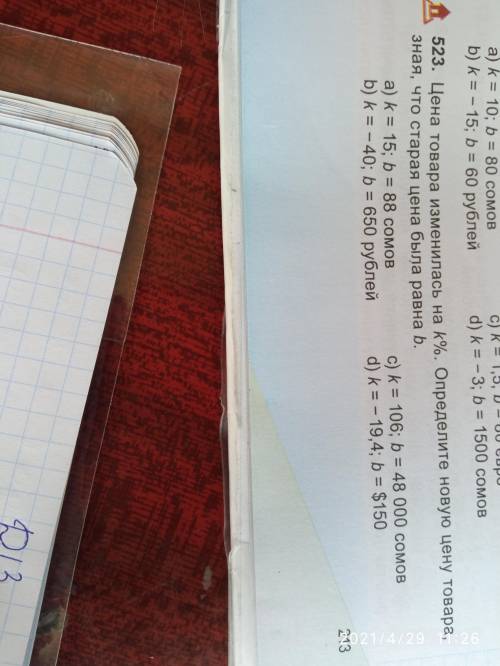 a) k = 10; b = 80 сомов
b) k = – 15; b = 60 рублей
d) k = – 3; b = 1500 сомов
523. Цена товара изменилась на k%. Определите новую цену товара,
зная, что старая цена была равна b.
a) k = 15; b = 88 сомов
b) k = – 40; b = 650 рублей
c) k = 106; b = 48 000 сомов
d) k = – 19,4; b = $150
2021/4/29 11:26